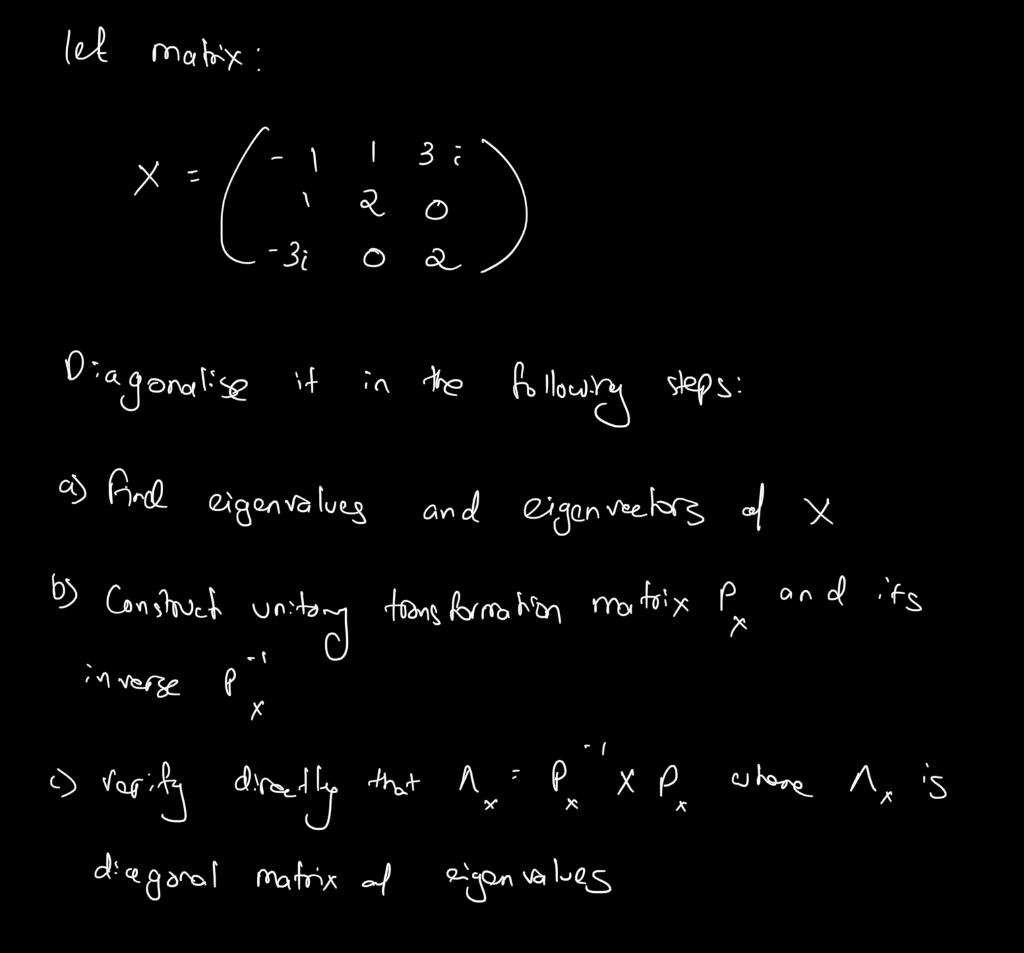 let matrix:
X = ( -1 1 3i
1 2 0
-3i 0 2 )
Diagonalise it in the following steps:
a) find eigenvalues and eigenvectors of X
b) Construct unitary transformation matrix Pₓ and its
inverse Pₓ⁻¹
c) Verify directly that Λₓ = Pₓ⁻¹ X Pₓ where Λₓ is
diagonal matrix of eigenvalues